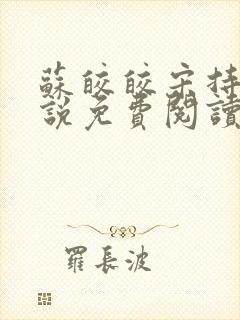 蘇皎皎宋持
說免費閱讀
羅長波